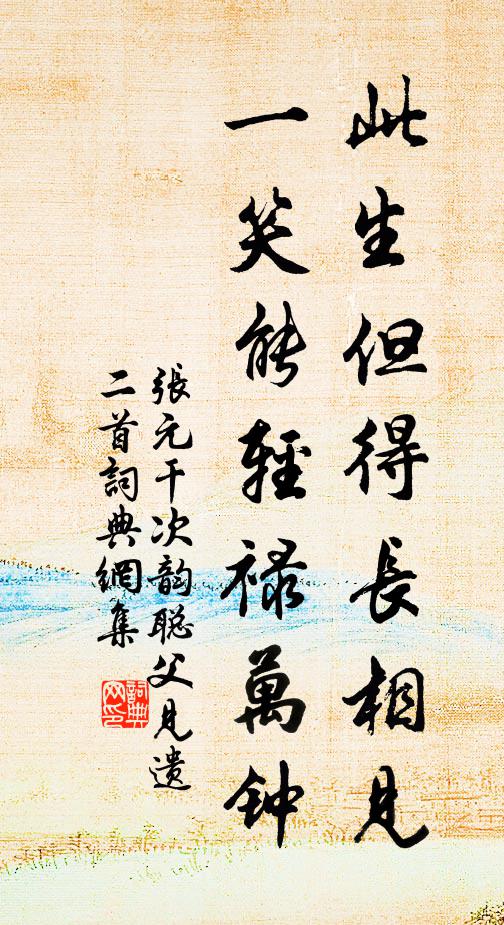 此生但得長相見
一笑能輕祿萬钟
張元干次韵聪父見遗
二首詞典網集
詞典
网印